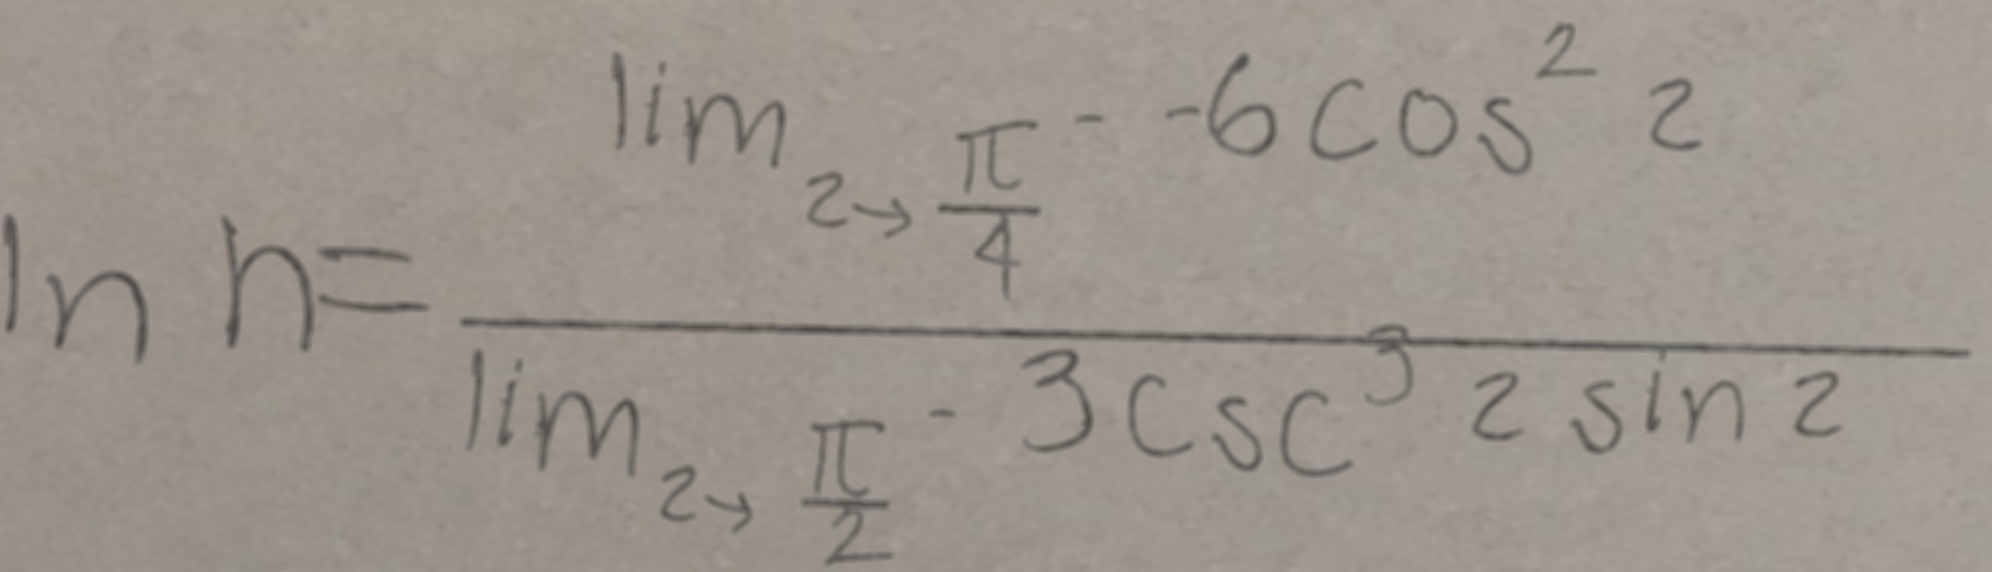 ln h = \frac{\lim_{z \to \frac{\pi}{4}^-} -6 \cos^2 z}{\lim_{z \to \frac{\pi}{2}^-} 3 \csc^3 z \sin z}